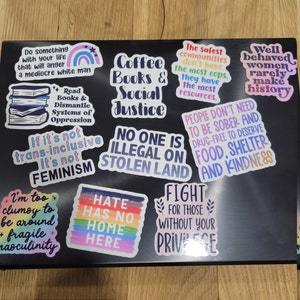 Do something
with your life
that will anger
a mediocre white man
Coffee
Books &
Social
Justice
The safest
communities
don't have
the most cops,
they have
the most
resources.
Well
behaved
women
rarely make
history
Read
Books &
Dismantle
Systems of
Oppression
If it's not
trans-inclusive
It's not
FEMINISM
NO ONE IS
ILLEGAL ON
STOLEN LAND
PEOPLE DON'T NEED
TO BE SOBER AND
DRUG-FREE TO DESERVE
FOOD, SHELTER
AND KINDNESS
I'm too
clumsy to
be around
fragile
masculinity
HATE
HAS NO
HOME
HERE
FIGHT
FOR THOSE
WITHOUT YOUR
PRIVILEGE